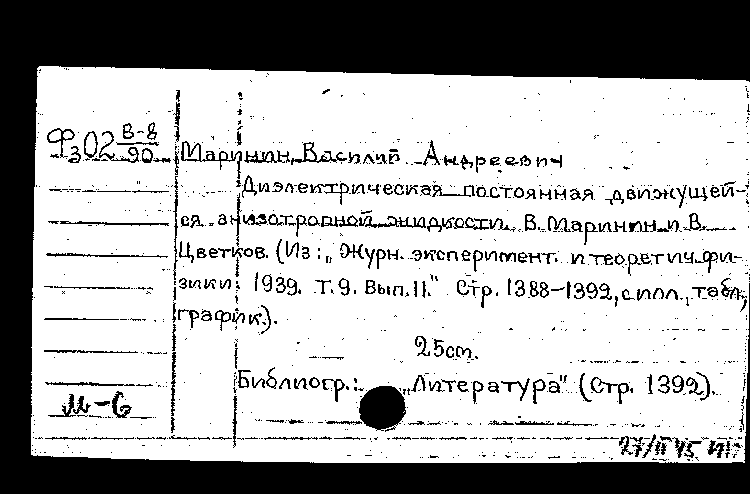 Ф₃02 В-8/90
Маринин, Василий Андреевич
Диэлектрическая постоянная движущей-
ся анизотропной жидкости. В. Маринин и В.
Цветков. (Из: „Журн. эксперимент. и теоретич. фи-
зики. 1939. Т. 9. Вып. 11." Стр. 1388-1392, с илл., табл.,
график.).
25cm.
Библиогр.: „Литература" (Стр. 1392).
М-С
27/II 45